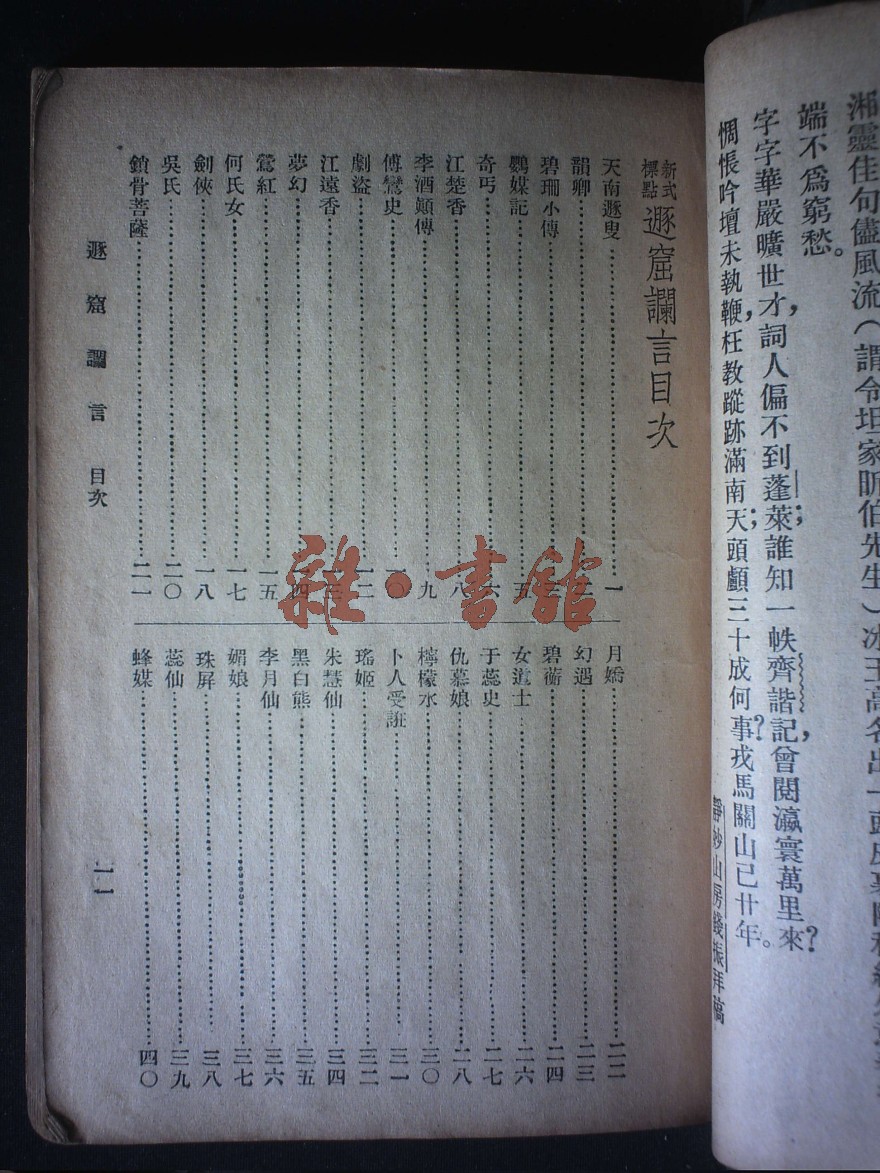 湘靈佳句儘風流（謂令坦家昕伯先生）冰玉高名出一頭
端不爲窮愁。
字字華嚴曠世才，詞人偏不到蓬萊；誰知一帙齊諧記，曾閱瀛寰萬里來？
惆悵吟壇未執鞭，枉教蹤跡滿南天；頭顱三十成何事？戎馬關山已廿年。
靜妙山房錢振拜稿
新式標點 遯窟讕言目次
天南遯叟……一
韻卿……二
碧珊小傳……三
鸚媒記……五
奇丐……六
江楚香……八
李酒顛傳……九
傅鸞史……一〇
劇盜……一二
江遠香……一三
夢幻……一四
鶯紅……一五
何氏女……一七
劍俠……一八
吳氏……二〇
鎖骨菩薩……二一
月嬌……二二
幻遇……二三
碧蘅……二四
女道士……二六
于蕊史……二七
仇慕娘……二八
檸檬水……三〇
卜人受誑……三一
瑤姬……三二
朱慧仙……三四
黑白熊……三五
李月仙……三六
媚娘……三七
珠屏……三八
蕊仙……三九
蜂媒……四〇
遯窟讕言 目次
雜·書館